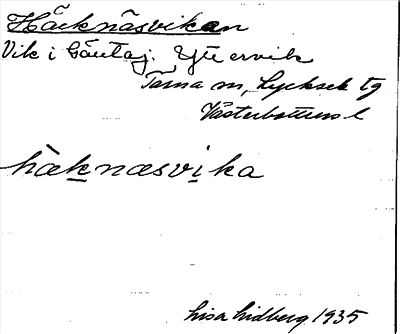 Häcknäsvikan
Vik i Gäutaj. Yttervik
Tärna sn, Lycksele tg
Västerbottens l
hàek̲næsvi̲ka
Lisa Lidberg 1935